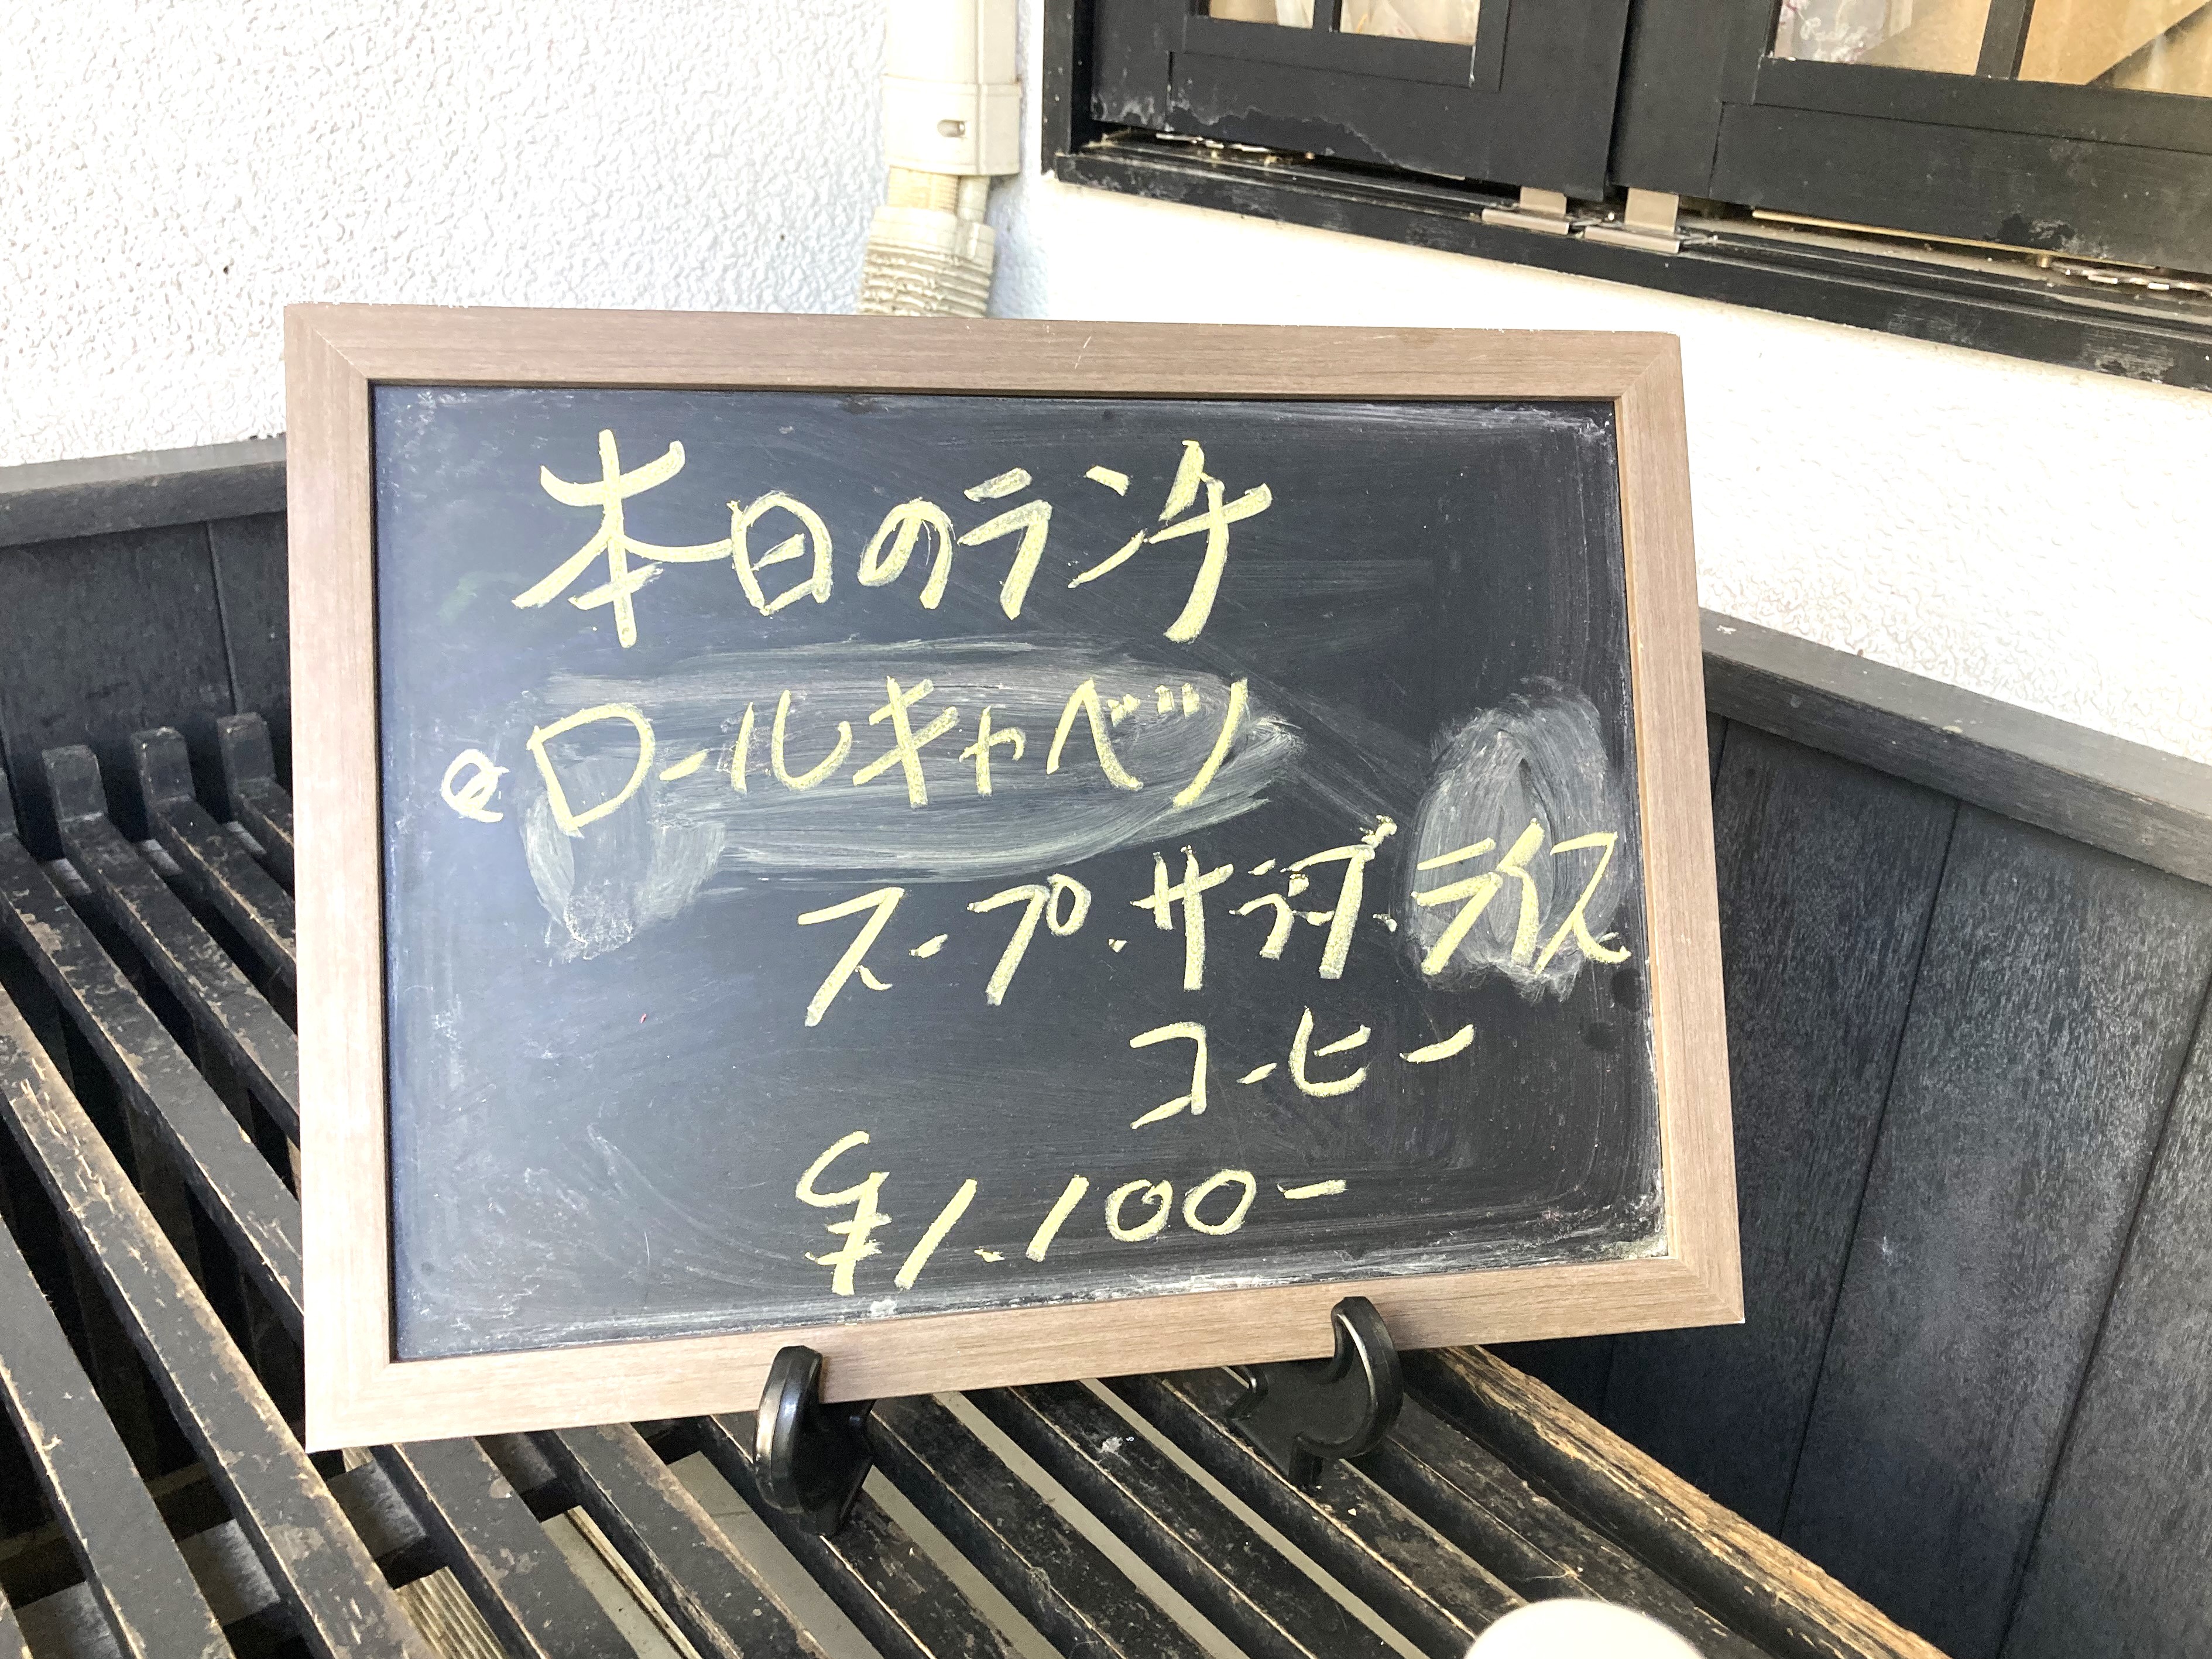 本日のランチ
ロールキャベツ
スープ.サラダ.ライス
コーヒー
¥1.100-